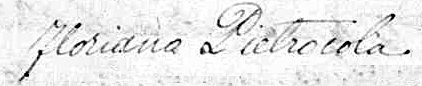 Floriana Pietrocola